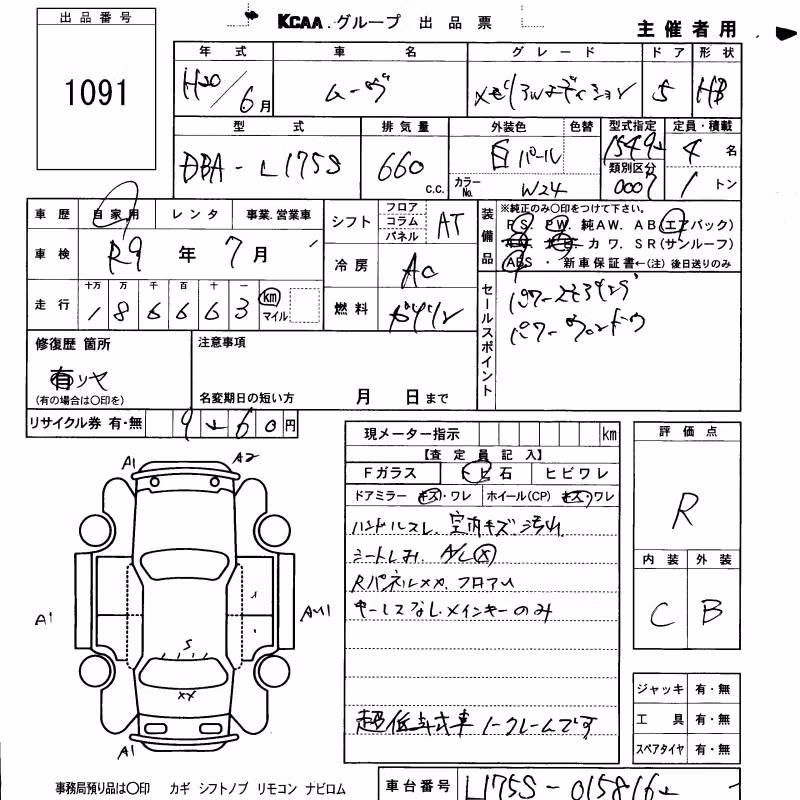 出品番号
1091
KCAA.グループ 出品票
主催者用
年式 車名 グレード ドア 形状
H20/6月 ムーヴ メモリアルエディション 5 HB
型式 排気量 外装色 色替 型式指定 定員・積載
DBA-L175S 660 c.c. 白パール 類別区分 0007 4名
カラーNo. W24 1トン
車歴 自家用 レンタ 事業.営業車
車検 R9年7月
走行 十万 万 千 百 十 一
186663 km マイル
シフト フロア コラム パネル AT
冷房 AC
燃料 ガソリン
装備品
※純正のみ〇印をつけて下さい。
P.S. P.W. 純AW. AB(エアバック)
カワ. SR(サンルーフ)
ABS ・ 新車保証書←(注)後日送りのみ
セールスポイント
パワーステアリング
パワーウィンドウ
修復歴 箇所
有
(有の場合は〇印を)
注意事項
名変期日の短い方 月 日まで
リサイクル券 有・無 円
現メーター指示 km
【査定員記入】
Fガラス トビ石 ヒビワレ
ドアミラー キズ・ワレ ホイール(CP) キズ・ワレ
ハンドルスレ. 室内キズ汚れ
シートしみ. A/C×
RパネルXX. フロアU
キーレスなし.メインキーのみ
超低年式車 ノークレームです
評価点
R
内装 外装
C B
ジャッキ 有・無
工具 有・無
スペアタイヤ 有・無
A1 A2
A1
S
XX
A1
事務局預り品は〇印 カギ シフトノブ リモコン ナビロム
車台番号